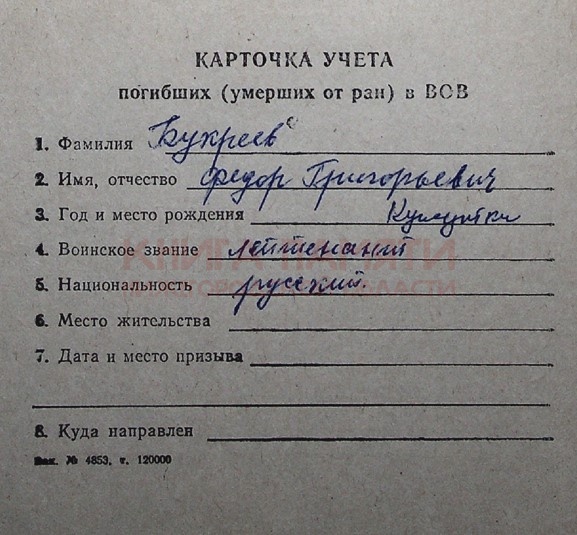 КАРТОЧКА УЧЕТА
погибших (умерших от ран) в ВОВ
1. Фамилия Букреев
2. Имя, отчество Федор Григорьевич
3. Год и место рождения
4. Воинское звание лейтенант
5. Национальность русский.
КНИГА ПАМЯТИ
ОБЛАСТИ
6. Место жительства
7. Дата и место призыва
8. Куда направлен
Зак. № 4853. т. 120000